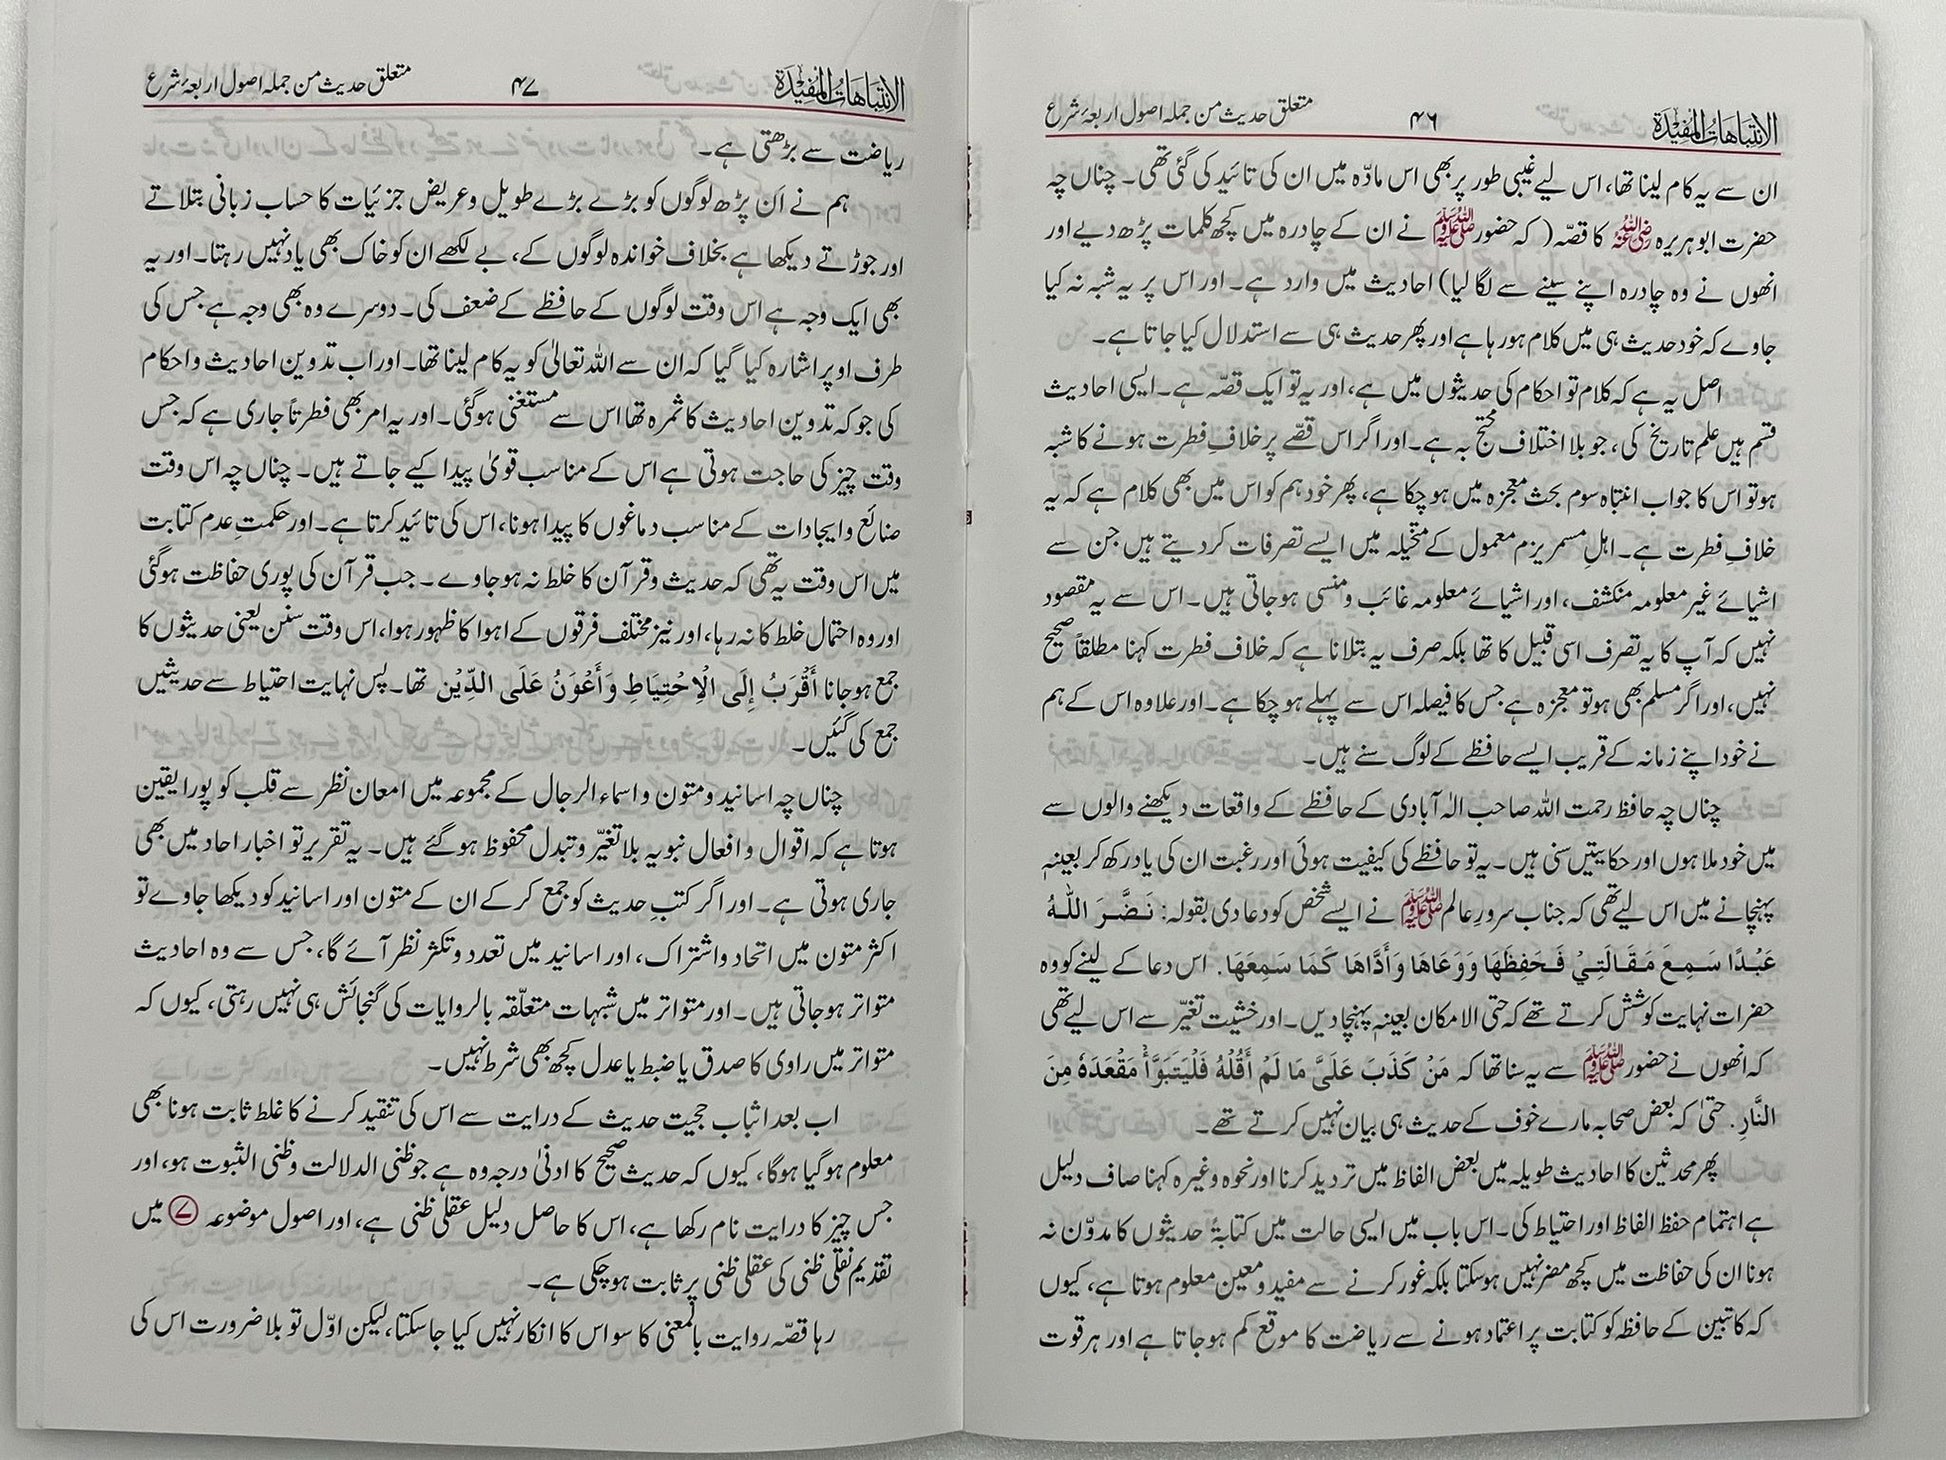 الانتباهات المفیدة ۴۶ متعلق حدیث من جملہ اصول اربعۂ شرع
ان سے یہ کام لینا تھا، اس لیے غیبی طور پر بھی اس مادّہ میں ان کی تائید کی گئی تھی۔ چناں چہ
حضرت ابو ہریرہ رضی اللہ عنہ کا قصّہ (کہ حضور ﷺ نے ان کے چادرہ میں کچھ کلمات پڑھ دیے اور
انھوں نے وہ چادرہ اپنے سینے سے لگا لیا) احادیث میں وارد ہے۔ اور اس پر یہ شبہ نہ کیا
جاوے کہ خود حدیث ہی میں کلام ہو رہا ہے اور پھر حدیث ہی سے استدلال کیا جاتا ہے۔
اصل یہ ہے کہ کلام تو احکام کی حدیثوں میں ہے، اور یہ تو ایک قصّہ ہے۔ ایسی احادیث
قسم ہیں علم تاریخ کی، جو بلا اختلاف محتج بہ ہے۔ اور اگر اس قصّے پر خلافِ فطرت ہونے کا شبہ
ہو تو اس کا جواب انتباہ سوم بحث معجزہ میں ہو چکا ہے، پھر خود ہم کو اس میں بھی کلام ہے کہ یہ
خلافِ فطرت ہے۔ اہلِ مسمریزم معمول کے متخیلہ میں ایسے تصرفات کر دیتے ہیں جن سے
اشیائے غیر معلومہ منکشف، اور اشیائے معلومہ غائب و منسی ہو جاتی ہیں۔ اس سے یہ مقصود
نہیں کہ آپ کا یہ تصرف اسی قبیل کا تھا بلکہ صرف یہ بتلانا ہے کہ خلاف فطرت کہنا مطلقاً صحیح
نہیں، اور اگر مسلم بھی ہو تو معجزہ ہے جس کا فیصلہ اس سے پہلے ہو چکا ہے۔ اور علاوہ اس کے ہم
نے خود اپنے زمانہ کے قریب ایسے حافظے کے لوگ سنے ہیں۔
چناں چہ حافظ رحمت اللہ صاحب الٰہ آبادی کے حافظے کے واقعات دیکھنے والوں سے
میں خود ملا ہوں اور حکایتیں سنی ہیں۔ یہ تو حافظے کی کیفیت ہوئی اور رغبت ان کی یاد رکھ کر بعینہٖ
پہنچانے میں اس لیے تھی کہ جناب سرورِ عالم ﷺ نے ایسے شخص کو دعا دی بقولہ: نَضَّرَ اللّٰهُ
عَبْدًا سَمِعَ مَقَالَتِيْ فَحَفِظَهَا وَوَعَاهَا وَأَدَّاهَا كَمَا سَمِعَهَا. اس دعا کے لینے کو وہ
حضرات نہایت کوشش کرتے تھے کہ حتی الامکان بعینہٖ پہنچا دیں۔ اور خشیت تغیّر سے اس لیے تھی
کہ انھوں نے حضور ﷺ سے یہ سنا تھا کہ مَنْ كَذَبَ عَلَيَّ مَا لَمْ أَقُلْهُ فَلْيَتَبَوَّأْ مَقْعَدَهٗ مِنَ
النَّارِ. حتیٰ کہ بعض صحابہ مارے خوف کے حدیث ہی بیان نہیں کرتے تھے۔
پھر محدثین کا احادیث طویلہ میں بعض الفاظ میں تردید کرنا اور نحوہ وغیرہ کہنا صاف دلیل
ہے اہتمام حفظ الفاظ اور احتیاط کی۔ اس باب میں ایسی حالت میں کتابۃً حدیثوں کا مدوّن نہ
ہونا ان کی حفاظت میں کچھ مضر نہیں ہو سکتا بلکہ غور کرنے سے مفید و معین معلوم ہوتا ہے، کیوں
کہ کاتبین کے حافظہ کو کتابت پر اعتماد ہونے سے ریاضت کا موقع کم ہو جاتا ہے اور ہر قوت
الانتباهات المفیدة ۴۷ متعلق حدیث من جملہ اصول اربعۂ شرع
ریاضت سے بڑھتی ہے۔
ہم نے اَن پڑھ لوگوں کو بڑے بڑے طویل و عریض جزئیات کا حساب زبانی بتلاتے
اور جوڑتے دیکھا ہے بخلاف خواندہ لوگوں کے، بے لکھے ان کو خاک بھی یاد نہیں رہتا۔ اور یہ
بھی ایک وجہ ہے اس وقت لوگوں کے حافظے کے ضعف کی۔ دوسرے وہ بھی وجہ ہے جس کی
طرف اوپر اشارہ کیا گیا کہ ان سے اللہ تعالیٰ کو یہ کام لینا تھا۔ اور اب تدوین احادیث و احکام
کی جو کہ تدوین احادیث کا ثمرہ تھا اس سے مستغنی ہو گئی۔ اور یہ امر بھی فطرتاً جاری ہے کہ جس
وقت چیز کی حاجت ہوتی ہے اس کے مناسب قویٰ پیدا کیے جاتے ہیں۔ چناں چہ اس وقت
صنائع و ایجادات کے مناسب دماغوں کا پیدا ہونا، اس کی تائید کرتا ہے۔ اور حکمتِ عدم کتابت
میں اس وقت یہ تھی کہ حدیث و قرآن کا خلط نہ ہو جاوے۔ جب قرآن کی پوری حفاظت ہو گئی
اور وہ احتمال خلط کا نہ رہا، اور نیز مختلف فرقوں کے اہوا کا ظہور ہوا، اس وقت سنن یعنی حدیثوں کا
جمع ہو جانا أَقْرَبُ إِلَى الْاِحْتِيَاطِ وَأَعْوَنُ عَلَى الدِّيْن تھا۔ پس نہایت احتیاط سے حدیثیں
جمع کی گئیں۔
چناں چہ اسانید و متون و اسماء الرجال کے مجموعہ میں امعان نظر سے قلب کو پورا یقین
ہوتا ہے کہ اقوال و افعال نبویہ بلا تغیّر و تبدل محفوظ ہو گئے ہیں۔ یہ تقریر تو اخبار احاد میں بھی
جاری ہوتی ہے۔ اور اگر کتبِ حدیث کو جمع کر کے ان کے متون اور اسانید کو دیکھا جاوے تو
اکثر متون میں اتحاد و اشتراک، اور اسانید میں تعدد و تکثر نظر آئے گا، جس سے وہ احادیث
متواتر ہو جاتی ہیں۔ اور متواتر میں شبہات متعلّقہ بالروایات کی گنجائش ہی نہیں رہتی، کیوں کہ
متواتر میں راوی کا صدق یا ضبط یا عدل کچھ بھی شرط نہیں۔
اب بعد اثبات حجیت حدیث کے درایت سے اس کی تنقید کرنے کا غلط ثابت ہونا بھی
معلوم ہو گیا ہوگا، کیوں کہ حدیث صحیح کا ادنیٰ درجہ وہ ہے جو ظنی الدلالت و ظنی الثبوت ہو، اور
جس چیز کا درایت نام رکھا ہے، اس کا حاصل دلیل عقلی ظنی ہے، اور اصول موضوعہ ۷ میں
تقدیم نقلی ظنی کی عقلی ظنی پر ثابت ہو چکی ہے۔
رہا قصّہ روایت بالمعنی کا سو اس کا انکار نہیں کیا جا سکتا، لیکن اوّل تو بلا ضرورت اس کی